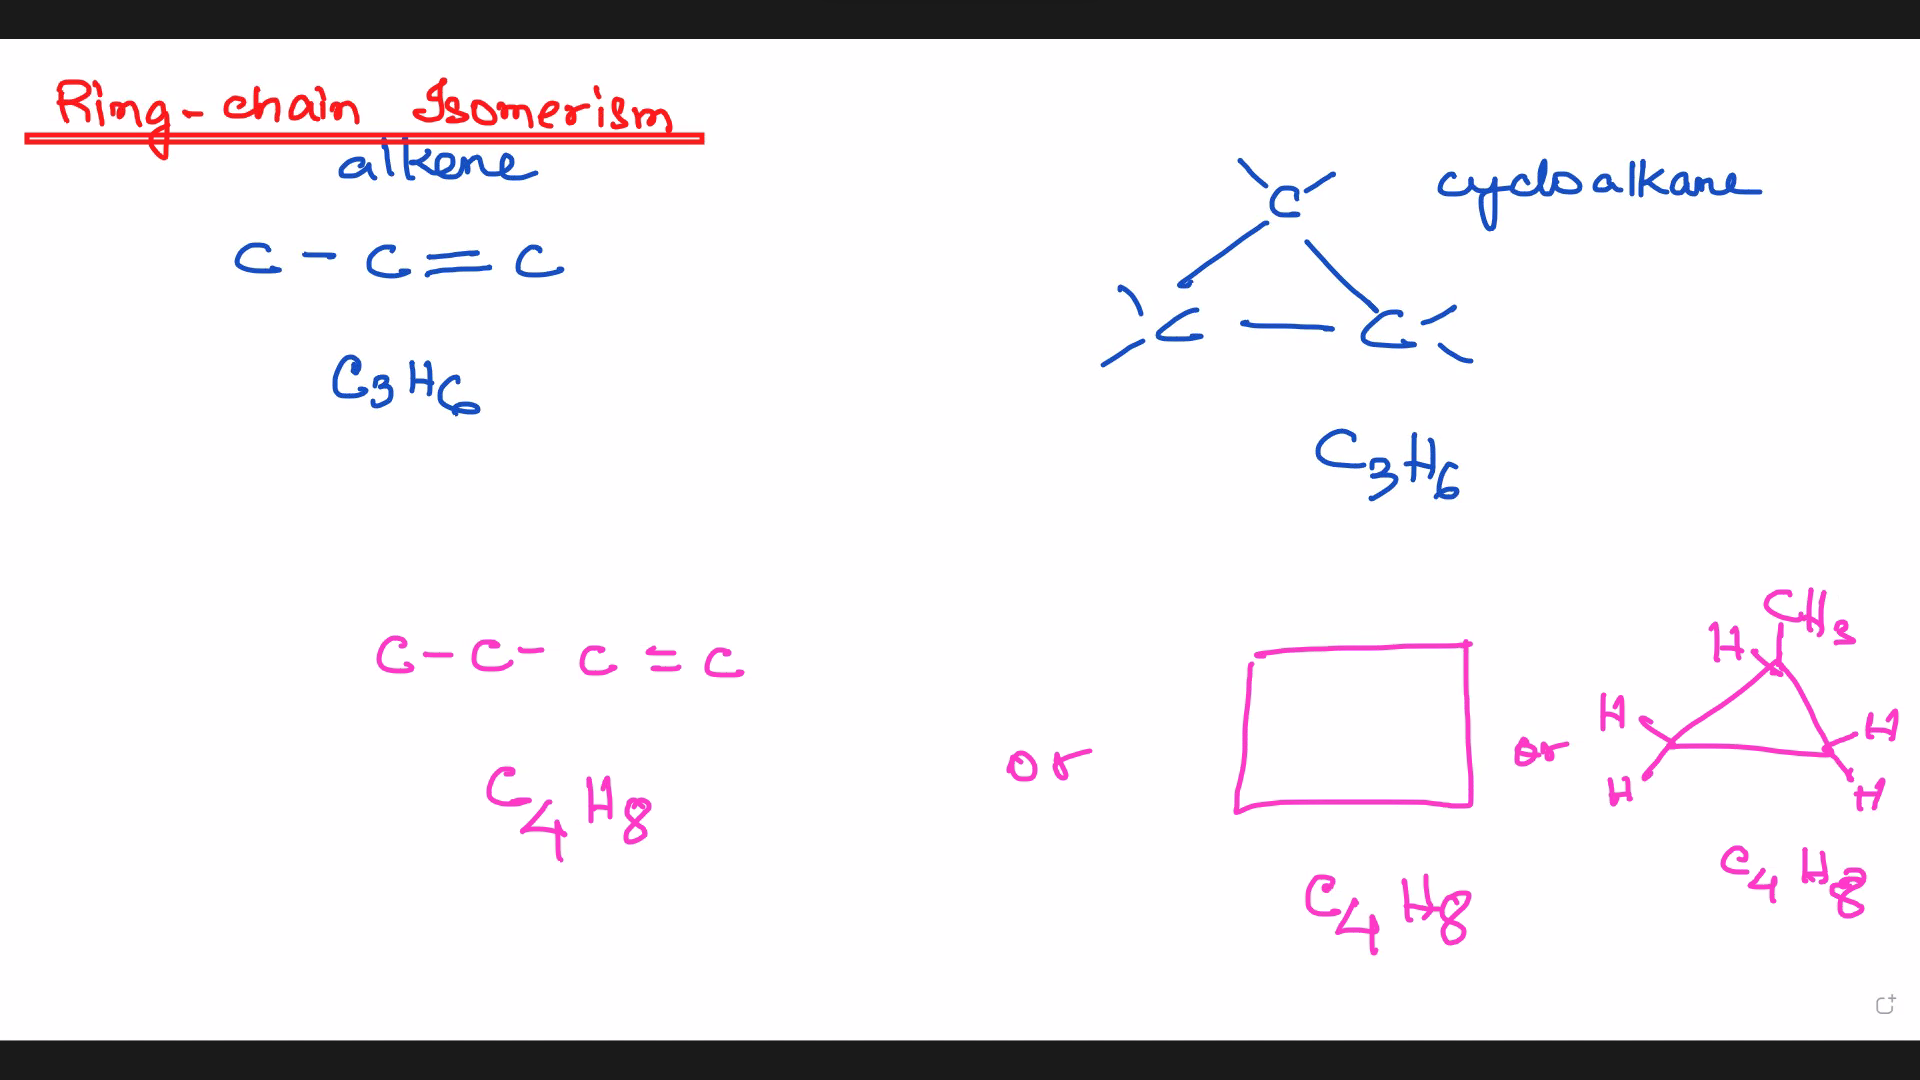 Ring-chain Isomerism
alkene
cycloalkane
C - C = C
C
C - C
C3H6
C3H6
C - C - C = C
C4H8
or
or
CH3
H
H
H
H
H
C4H8
C4H8